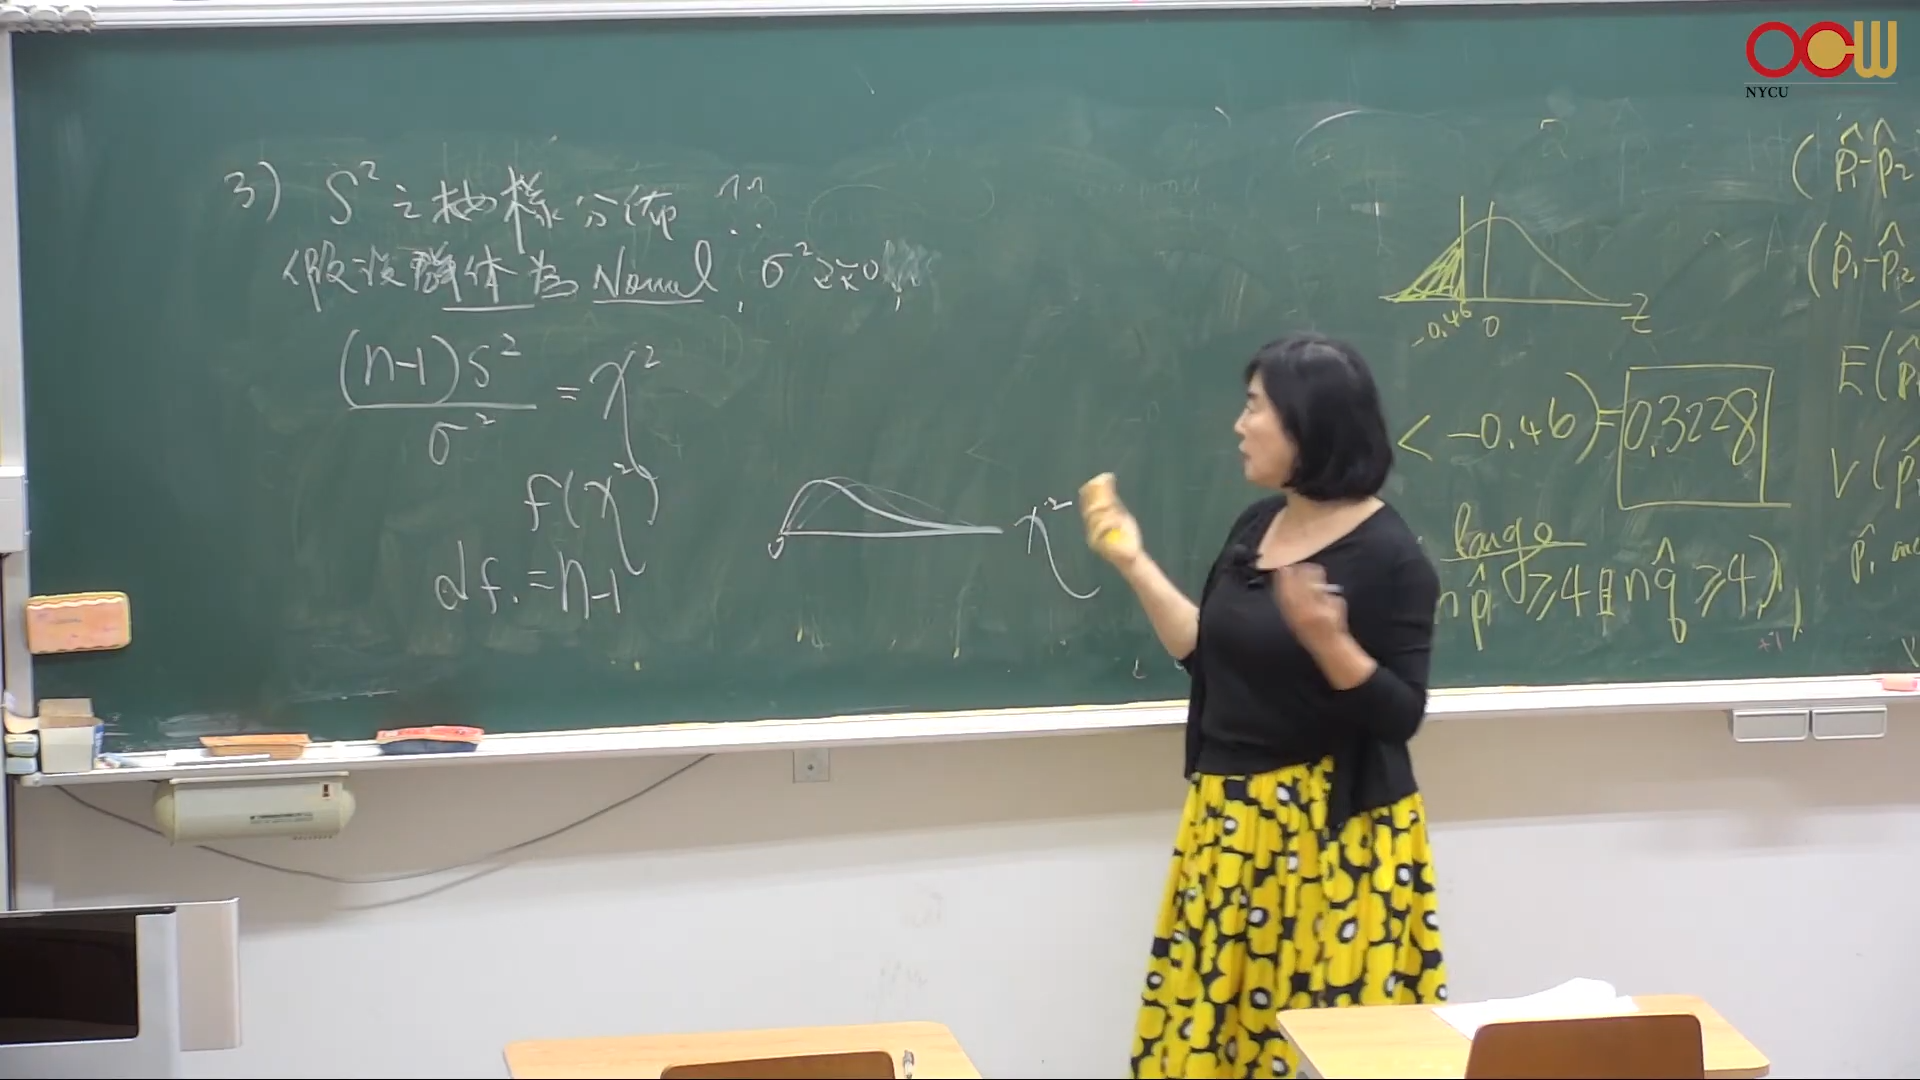 3) S² 之抽樣分佈 ??
假設群体為 Normal, σ² 已知,
(n-1)S² / σ² = χ²
f(χ²)
df. = n-1
0 χ²
-0.46 0 Z
< -0.46) = 0.3228
large
np̂ ≥ 4 且 nq̂ ≥ 4)
(p̂₁-p̂₂
(p̂₁-p̂₂
E(p̂
V(p̂
p̂₁
OCW
NYCU